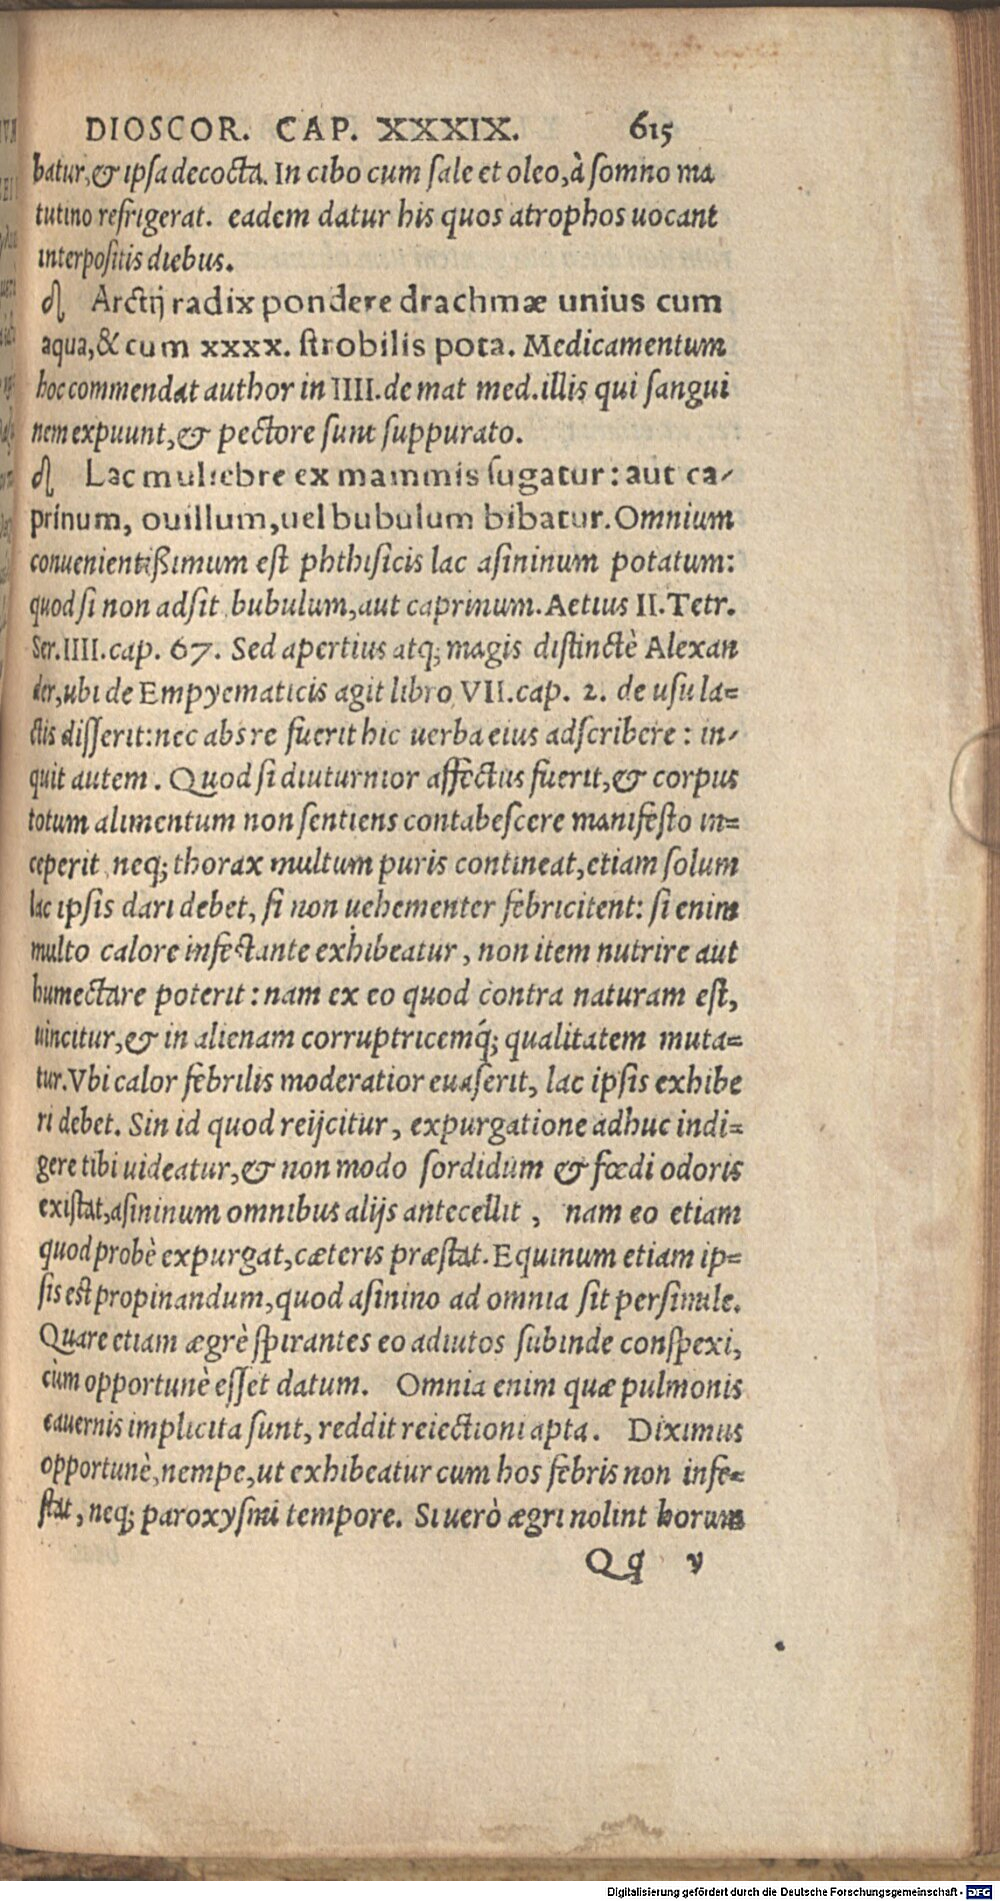 DIOSCOR. CAP. XXXIX. 615
batur,& ipsa decocta. In cibo cum sale et oleo,à somno ma
tutino refrigerat. eadem datur his quos atrophos uocant
interpositis diebus.
Arctij radix pondere drachmæ unius cum
aqua,& cum xxxx. strobilis pota. Medicamentum
hoc commendat author in IIII. de mat med. illis qui sangui
nem expuunt,& pectore sunt suppurato.
Lac muliebre ex mammis sugatur: aut ca-
prinum, ouillum,uel bubulum bibatur. Omnium
conuenientißimum est phthisicis lac asininum potatum:
quod si non adsit bubulum,aut caprinum. Aetius II. Tetr.
Ser. IIII. cap. 67. Sed apertius atq; magis distinctè Alexan
der,ubi de Empyematicis agit libro VII. cap. 2. de usu la=
ctis disserit: nec abs re fuerit hic uerba eius adscribere: in-
quit autem. Quod si diuturnior affectus fuerit,& corpus
totum alimentum non sentiens contabescere manifesto in=
ceperit neq; thorax multum puris contineat,etiam solum
lac ipsis dari debet, si non uehementer febricitent: si enim
multo calore infestante exhibeatur, non item nutrire aut
humectare poterit: nam ex eo quod contra naturam est,
uincitur,& in alienam corruptricemq́; qualitatem muta=
tur. Vbi calor febrilis moderatior euaserit, lac ipsis exhibe
ri debet. Sin id quod reijcitur, expurgatione adhuc indi=
gere tibi uideatur,& non modo sordidum & fœdi odoris
existat,asininum omnibus alijs antecellit, nam eo etiam
quod probè expurgat,cæteris præstat. Equinum etiam ip=
sis est propinandum,quod asinino ad omnia sit persimile.
Quare etiam ægrè spirantes eo adiutos subinde conspexi,
cùm opportunè esset datum. Omnia enim quæ pulmonis
cauernis implicita sunt, reddit reiectioni apta. Diximus
opportunè,nempe,ut exhibeatur cum hos febris non infe=
stat, neq; paroxysmi tempore. Si uerò ægri nolint horum
Qq v
Digitalisierung gefördert durch die Deutsche Forschungsgemeinschaft - DFG